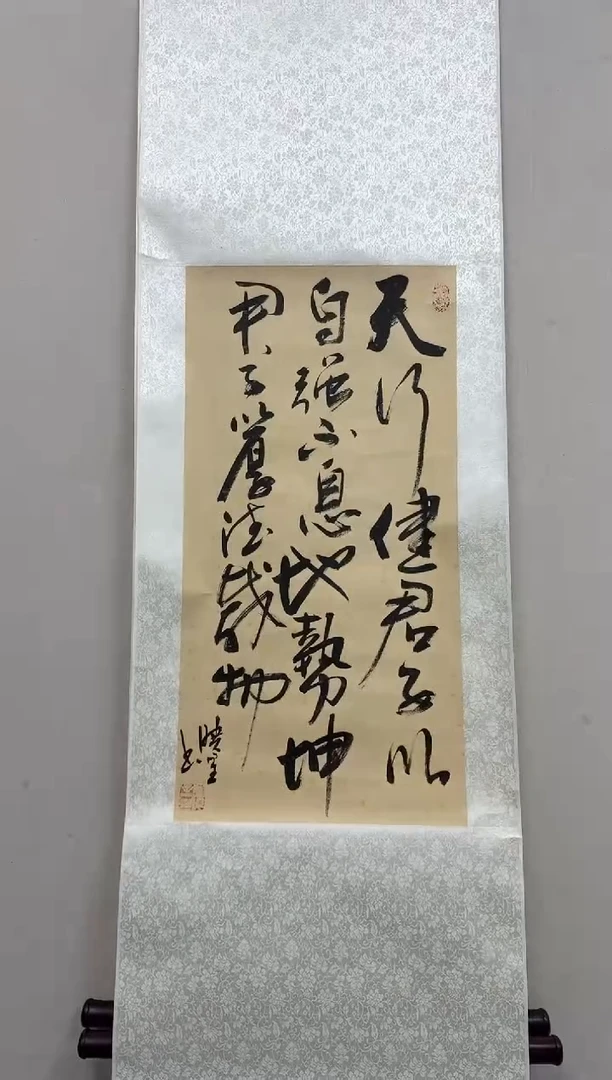 天行健君子以
自强不息地勢坤
君子以厚德載物
書